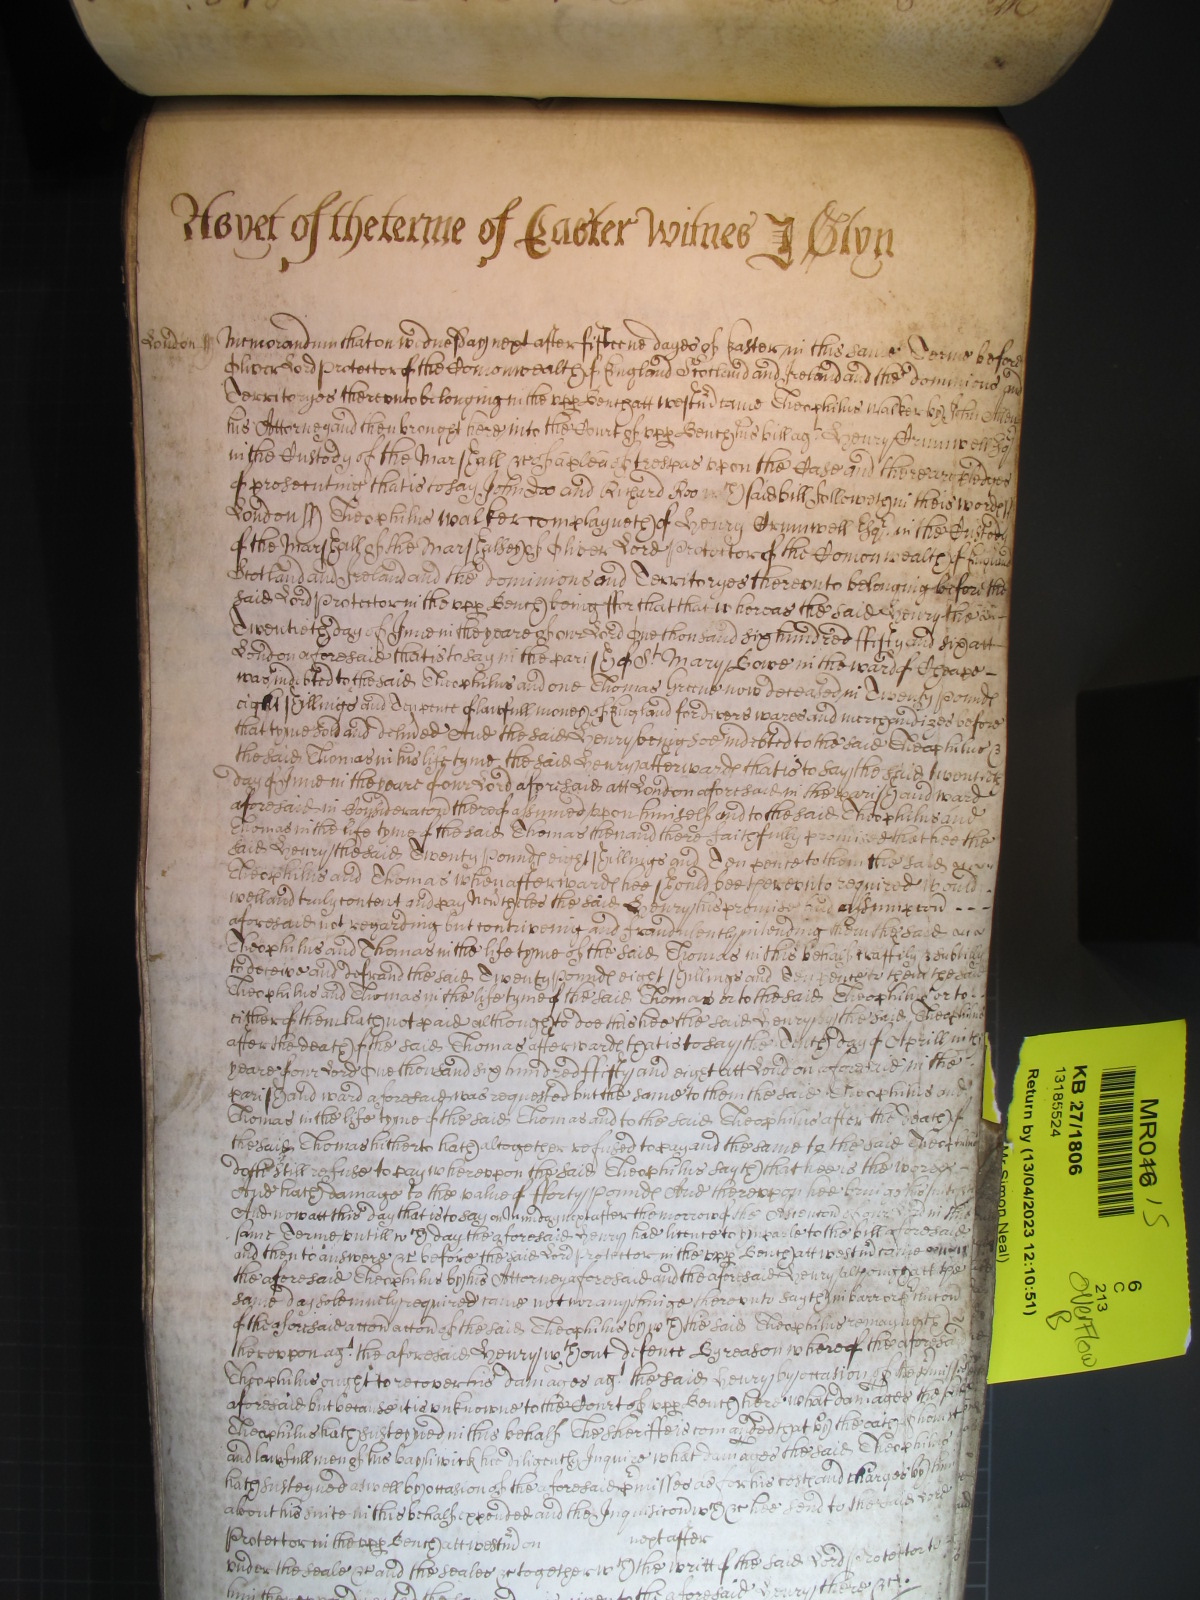 As yet of the terme of Easter Witnes J Glyn
London ss Memorandum that on wednesday next after fifteene dayes of Easter in this same Terme before
Oliver Lord Protector of the Comonwealth of England Scotland and Ireland and the dominions and
Territoryes thereunto belonging in the upp Bench att westm came Theophilus Walker by John
his Attorney and then brought here into the Court of upp Bench his bill agt Henry Crumwell Esqr
in the Custody of the Marshall &c of a plea of trespas upon the Case and there are pledges
of prosecuting that is to say John Doe and Richard Roo wch said bill followeth in theis words ss
London ss Theophilus Walker complayneth of Henry Crumwell Esqr. in the Custody
of the Marshall of the Marshallsey of Oliver Lord Protector of the Comonwealth of England
Scotland and Ireland and the dominions and Territoryes thereunto belonging before the
said Lord Protector in the upp Bench being ffor that that whereas the said Henry the
Twentieth day of June in the yeare of our Lord One thousand six hundred ffifty and six att
London aforesaid that is to say in the parish of St Mary Bowe in the ward of Cheape
was indebted to the said Theophilus and one Thomas Greene now deceased in Twenty Pounds
eight shillings and Ten pence of lawfull money of England for divers wares and merchandizes before
that tyme sold and deliv'ed And the said Henry being soe indebted to the said Theophilus &
the said Thomas in his life tyme the said Henry afterwards that is to say the said twentieth
day of June in the yeare of our Lord aforesaid att London aforesaid in the parish and ward
aforesaid in Consideracon thereof assumed upon himself and to the said Theophilus and
Thomas in the life tyme of the said Thomas then and there faithfully promised that hee the
said Henry the said Twenty Pounds eight shillings and Ten pence to them the said
Theophilus and Thomas when afterwards hee should bee thereunto required would
well and truly content and pay Neu'theles the said Henry his promise and assumpcon
aforesaid not regarding but contriveing and fraudulently intending them the said
Theophilus and Thomas in the life tyme of the said Thomas in this behalf craftily & subtilly
to deceive and defraud the said Twenty Pounds eight shillings and Ten pence to them the said
Theophilus and Thomas in the life tyme of the said Thomas or to the said Theophilus or to
either of them hath not paid although to doe this hee the said Henry by the said Theophilus
after the death of the said Thomas afterwards that is to say the Tenth day of Aprill in the
yeare of our Lord One thousand six hundred ffifty and eight att London aforesaid in the
parish and ward aforesaid was requested but the same to them the said Theophilus and
Thomas in the life tyme of the said Thomas and to the said Theophilus after the death of
the said Thomas hitherto hath altogether refused to pay and the same to the said Theophilus
doth still refuse to pay whereupon the said Theophilus sayth that hee is the worse
And hath damage to the value of fforty Pounds And thereupon hee brings his suite
And now att this day that is to say on next after the morrow of the Ascencon of our Lord in this
same Terme untill wch day the aforesaid Henry had licence to imparle to the bill aforesaid
and then to answere &c before the said Lord Protector in the upp Bench att westm came
the aforesaid Theophilus by his Attorney aforesaid and the aforesaid Henry although att the
same day solemnely required came not nor any thinge thereunto sayth in barr or
of the aforesaid accon of the said Theophilus by wch the said Theophilus remayneth
thereupon agt the aforesaid Henry wthout defence By reason whereof the aforesaid
Theophilus ought to recover his damages agt the said Henry by occasion of the premisses
aforesaid but because it is unknowne to the Court of upp Bench here what damages the said
Theophilus hath susteyned in this behalf The sheriffe is comanded that by the oath of honest
and lawfull men of his bayliwick hee diligently Inquire what damages the said Theophilus
hath susteyned aswell by occasion of the aforesaid p'misses as for his costs and charges by him
about his suite in this behalf expended and the Inquisicon wch &c hee send to the said Lord
Protector in the upp Bench att westm on next after
under the seale &c and the seales &c together wth the writt of the said Lord Protector to
the aforesaid Henry there &c.
MR046 / 5
KB 27/1806
13185524
Return by (13/04/2023 12:10:51)
Mr Simon Neal)
6
C
213
Overflow
B